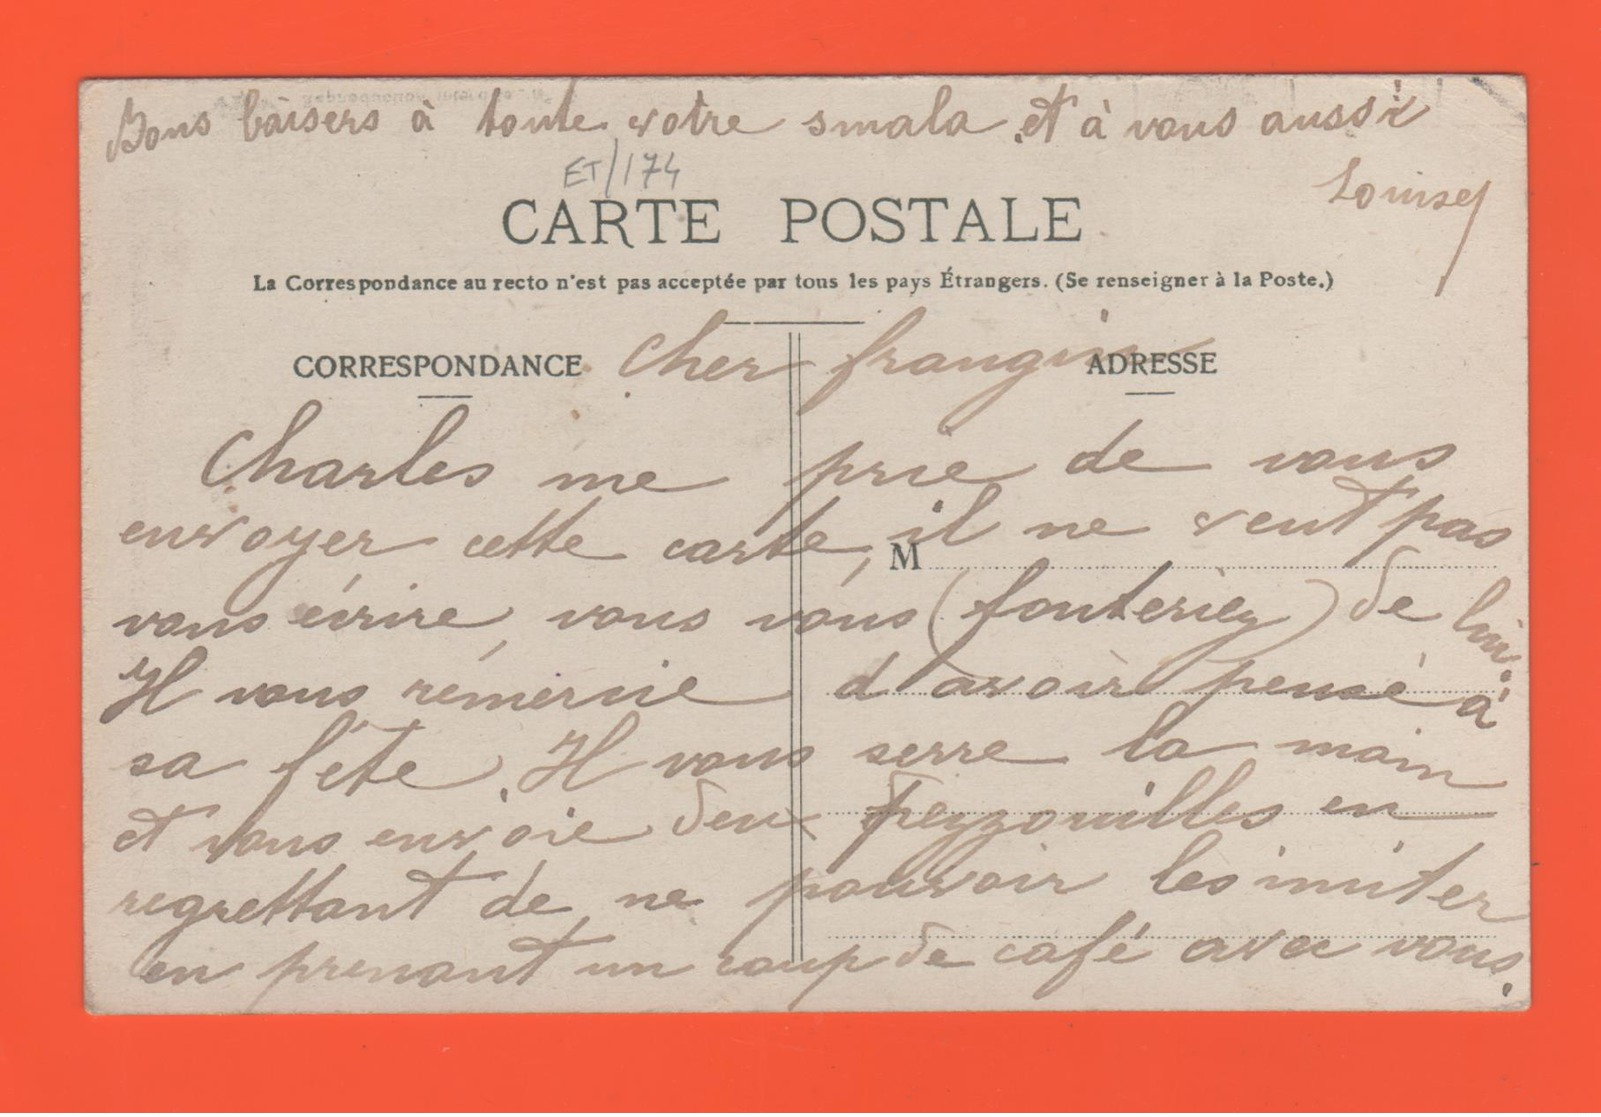 Bons baisers à toute votre smala et à vous aussi
Louise
ET/174
CARTE POSTALE
La Correspondance au recto n'est pas acceptée par tous les pays Étrangers. (Se renseigner à la Poste.)
CORRESPONDANCE
ADRESSE
Cher frangin
Charles me prie de vous
envoyer cette carte, il ne veut pas
M
vous écrire, vous vous (fouteriez) de lui.
Il vous remercie d'avoir pensé à
sa fête. Il vous serre la main
et vous envoie deux en
regrettant de ne pouvoir les inviter
en prenant un coup de café avec vous.